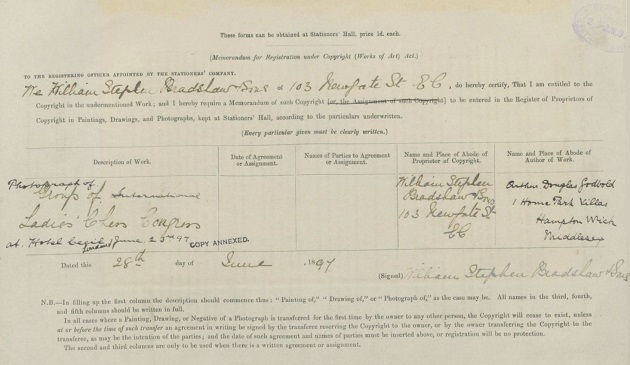 These forms can be obtained at Stationers' Hall, price 1d. each.
(Memorandum for Registration under Copyright (Works of Art) Act.)
TO THE REGISTERING OFFICER APPOINTED BY THE STATIONERS' COMPANY.
We William Stephen Bradshaw & Sons of 103 Newgate St EC, do hereby certify, That I am entitled to the
Copyright in the undermentioned Work; and I hereby require a Memorandum of such Copyright (or the Assignment of such Copyright) to be entered in the Register of Proprietors of
Copyright in Paintings, Drawings, and Photographs, kept at Stationers' Hall, according to the particulars underwritten.
(Every particular given must be clearly written.)
Description of Work.
Date of Agreement or Assignment.
Names of Parties to Agreement or Assignment.
Name and Place of Abode of Proprietor of Copyright.
Name and Place of Abode of Author of Work.
Photograph of
Group of International
Ladies' Chess Congress
at Hotel Cecil June 23rd 97
London
COPY ANNEXED.
William Stephen
Bradshaw & Sons
103 Newgate St
EC
Arthur Douglas Godbold
1 Home Park Villas
Hampton Wick
Middlesex
Dated this 28th day of June 1897
(Signed) William Stephen Bradshaw & Sons
N.B.—In filling up the first column the description should commence thus: "Painting of," "Drawing of," or "Photograph of," as the case may be. All names in the third, fourth,
and fifth columns should be written in full.
In all cases where a Painting, Drawing, or Negative of a Photograph is transferred for the first time by the owner to any other person, the Copyright will cease to exist, unless
at or before the time of such transfer an agreement in writing be signed by the transferee reserving the Copyright to the owner, or by the owner transferring the Copyright to the
transferee, as may be the intention of the parties; and the date of such agreement and names of parties must be inserted above, or registration will be no protection.
The second and third columns are only to be used when there is a written agreement or assignment.